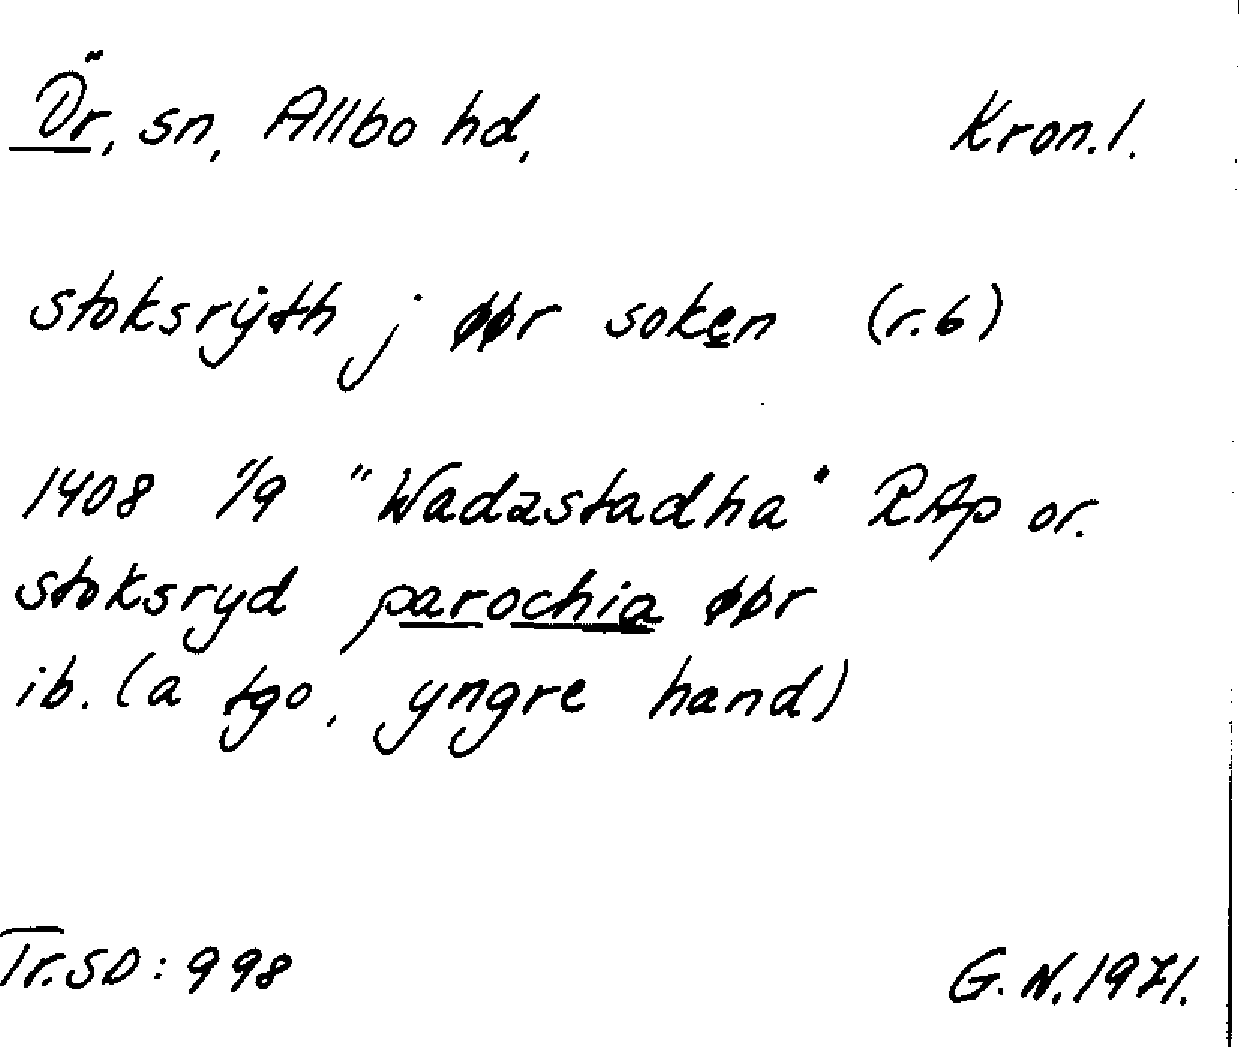 Ör, sn, Allbo hd, Kron.l.
stoksrÿth j øør soken (r.6)
1408 1/9 "Wadzstadha" RAp or.
stoksryd parochia øør
ib. (a tgo, yngre hand)
Tr. SD: 998 G. N. 1971.